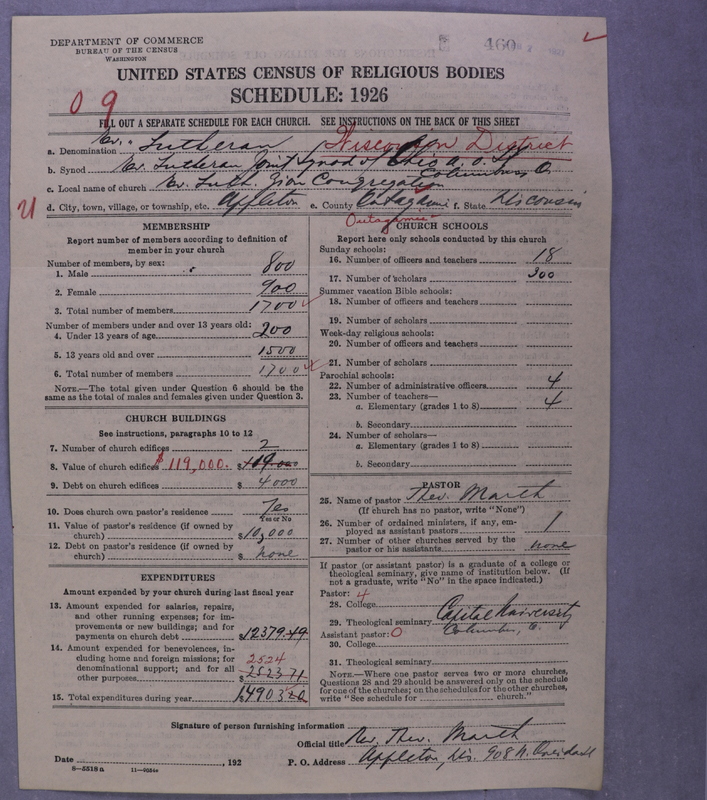 DEPARTMENT OF COMMERCE
BUREAU OF THE CENSUS
WASHINGTON
460
UNITED STATES CENSUS OF RELIGIOUS BODIES
SCHEDULE: 1926
0 9
FILL OUT A SEPARATE SCHEDULE FOR EACH CHURCH. SEE INSTRUCTIONS ON THE BACK OF THIS SHEET
a. Denomination Ev. Lutheran Wisconsin District
b. Synod Ev. Lutheran Joint Synod of Ohio a. o. S. Columbus, O.
c. Local name of church Ev. Luth. Zion Congregation
d. City, town, village, or township, etc. Appleton e. County Outagami f. State Wisconsin
Outagamie
MEMBERSHIP
Report number of members according to definition of member in your church
Number of members, by sex:
1. Male 800
2. Female 900
3. Total number of members 1700
Number of members under and over 13 years old:
4. Under 13 years of age 200
5. 13 years old and over 1500
6. Total number of members 1700
NOTE.—The total given under Question 6 should be the same as the total of males and females given under Question 3.
CHURCH BUILDINGS
See instructions, paragraphs 10 to 12
7. Number of church edifices 2
8. Value of church edifices $119,000. $119.000
9. Debt on church edifices $ 4000
10. Does church own pastor's residence Yes
Yes or No
11. Value of pastor's residence (if owned by church) $10,000
12. Debt on pastor's residence (if owned by church) $ none
EXPENDITURES
Amount expended by your church during last fiscal year
13. Amount expended for salaries, repairs, and other running expenses; for improvements or new buildings; and for payments on church debt $12379.49
14. Amount expended for benevolences, including home and foreign missions; for denominational support; and for all other purposes 2524 $252371
15. Total expenditures during year $1490320
CHURCH SCHOOLS
Report here only schools conducted by this church
Sunday schools:
16. Number of officers and teachers 18
17. Number of scholars 300
Summer vacation Bible schools:
18. Number of officers and teachers
19. Number of scholars
Week-day religious schools:
20. Number of officers and teachers
21. Number of scholars
Parochial schools:
22. Number of administrative officers 4
23. Number of teachers—
a. Elementary (grades 1 to 8) 4
b. Secondary
24. Number of scholars—
a. Elementary (grades 1 to 8)
b. Secondary
PASTOR
25. Name of pastor Theo. Marth
(If church has no pastor, write "None")
26. Number of ordained ministers, if any, employed as assistant pastors 1
27. Number of other churches served by the pastor or his assistants none
If pastor (or assistant pastor) is a graduate of a college or theological seminary, give name of institution below. (If not a graduate, write "No" in the space indicated.)
Pastor: 4
28. College
29. Theological seminary Capital University
Assistant pastor: 0 Columbus, O.
30. College
31. Theological seminary
NOTE.—Where one pastor serves two or more churches, Questions 28 and 29 should be answered only on the schedule for one of the churches; on the schedules for the other churches, write "See schedule for church."
Signature of person furnishing information
Official title Rev. Theo. Marth
Date , 192 P. O. Address Appleton, Wis. 908 N. Oneida St
8-5518a 11-9054